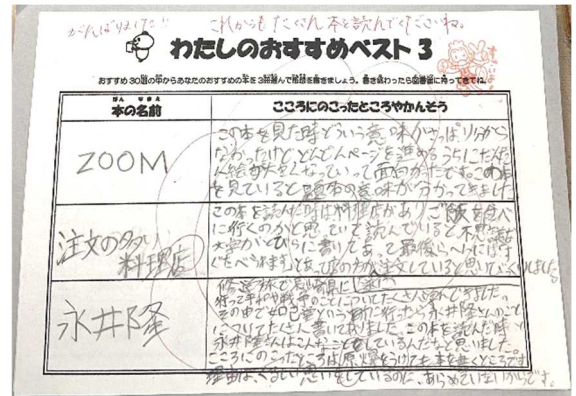 がんばりました!!
これからもたくさん本を読んでくださいね。
わたしのおすすめベスト3
おすすめ30冊の中からあなたのおすすめの本を3冊選んで感想を書きましょう。書き終わったら図書室に持ってきてね。
ほん なまえ
本の名前
こころにのこったところやかんそう
ZOOM
この本を見た時どういう意味かさっぱり分から
なかったけど、どんどんページを進めるうちにだんだ
ん絵が大きくなっていって面白かったです。この本
を見ていると題名の意味が分かってきました
注文の多い
料理店
この本を読んだ時は料理店がありご飯を食べ
に行くのかと思っていて読んでいると不思議な
文字がとびらに書いてあって最後らへんには
をたべられます」と店の方が注文していると思いびっくりしました
永井隆
修学旅行で長崎県に
行って平和や戦争のことについてたくさん学んできました。
その中で如己堂という所に行き永井隆さんのこと
についてたくさん書いてありました。この本を読んだ時
永井隆さんはこんなことをしているんだなと思いました。
こころにのこったところは原爆をうけても本を書くところです。
理由は、くるしい思いをしているのに、あきらめていないからです。